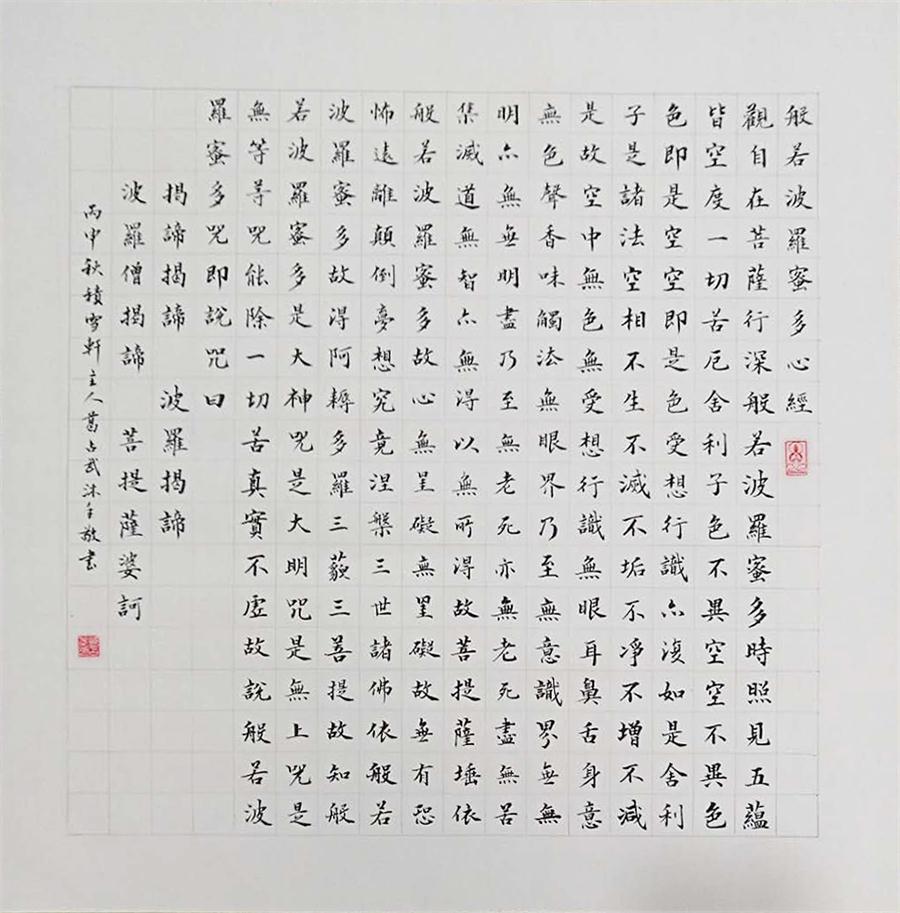 般若波羅蜜多心經
觀自在菩薩行深般若波羅蜜多時照見五蘊
皆空度一切苦厄舍利子色不異空空不異色
色即是空空即是色受想行識亦復如是舍利
子是諸法空相不生不滅不垢不凈不增不減
是故空中無色無受想行識無眼耳鼻舌身意
無色聲香味觸法無眼界乃至無意識界無無
明亦無無明盡乃至無老死亦無老死盡無苦
集滅道無智亦無得以無所得故菩提薩埵依
般若波羅蜜多故心無罣礙無罣礙故無有恐
怖遠離顛倒夢想究竟涅槃三世諸佛依般若
波羅蜜多故得阿耨多羅三藐三菩提故知般
若波羅蜜多是大神咒是大明咒是無上咒是
無等等咒能除一切苦真實不虛故說般若波
羅蜜多咒即說咒曰
揭諦揭諦 波羅揭諦
波羅僧揭諦 菩提薩婆訶
丙申秋積雪軒主人葛占武沐手敬書